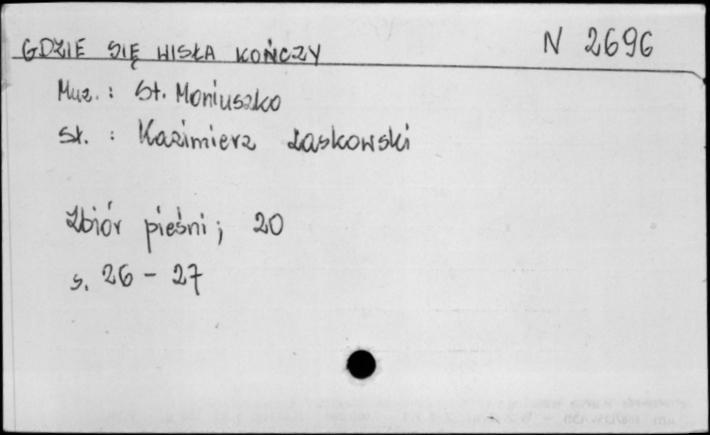 GDZIE SIĘ WISŁA KOŃCZY N 2696
Muz. : St. Moniuszko
Sł. : Kazimierz Laskowski
Zbiór pieśni; 20
s. 26 - 27